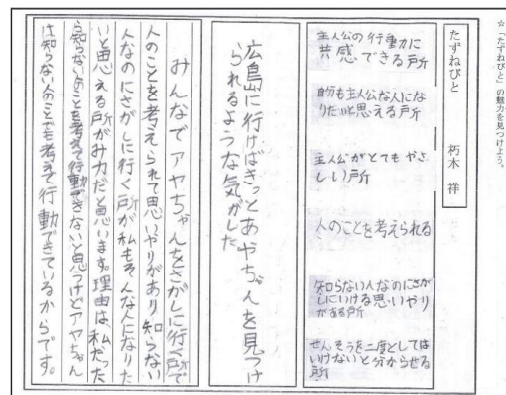 ☆「たずねびと」の魅力を見つけよう。
たずねびと　朽木 祥
主人公の行動力に
共感できる所
自分も主人公な人にな
りたいと思える所
主人公がとてもやさ
しい所
人のことを考えられる
知らない人なのにさが
しにいける思いやり
がある所
せんそうを二度としては
いけないと分からせる
所
広島に行けばきっとあやちゃんを見つけ
られるような気がした
みんなでアヤちゃんをさがしに行く所で
人のことを考えられて思いやりがあり知らない
人なのにさがしに行く所が私もそんな人になりた
いと思える所がみ力だと思います。理由は、私だった
ら知らない人のことを考えて行動できないと思うけどアヤちゃん
は知らない人のことでも考えて行動できているからです。